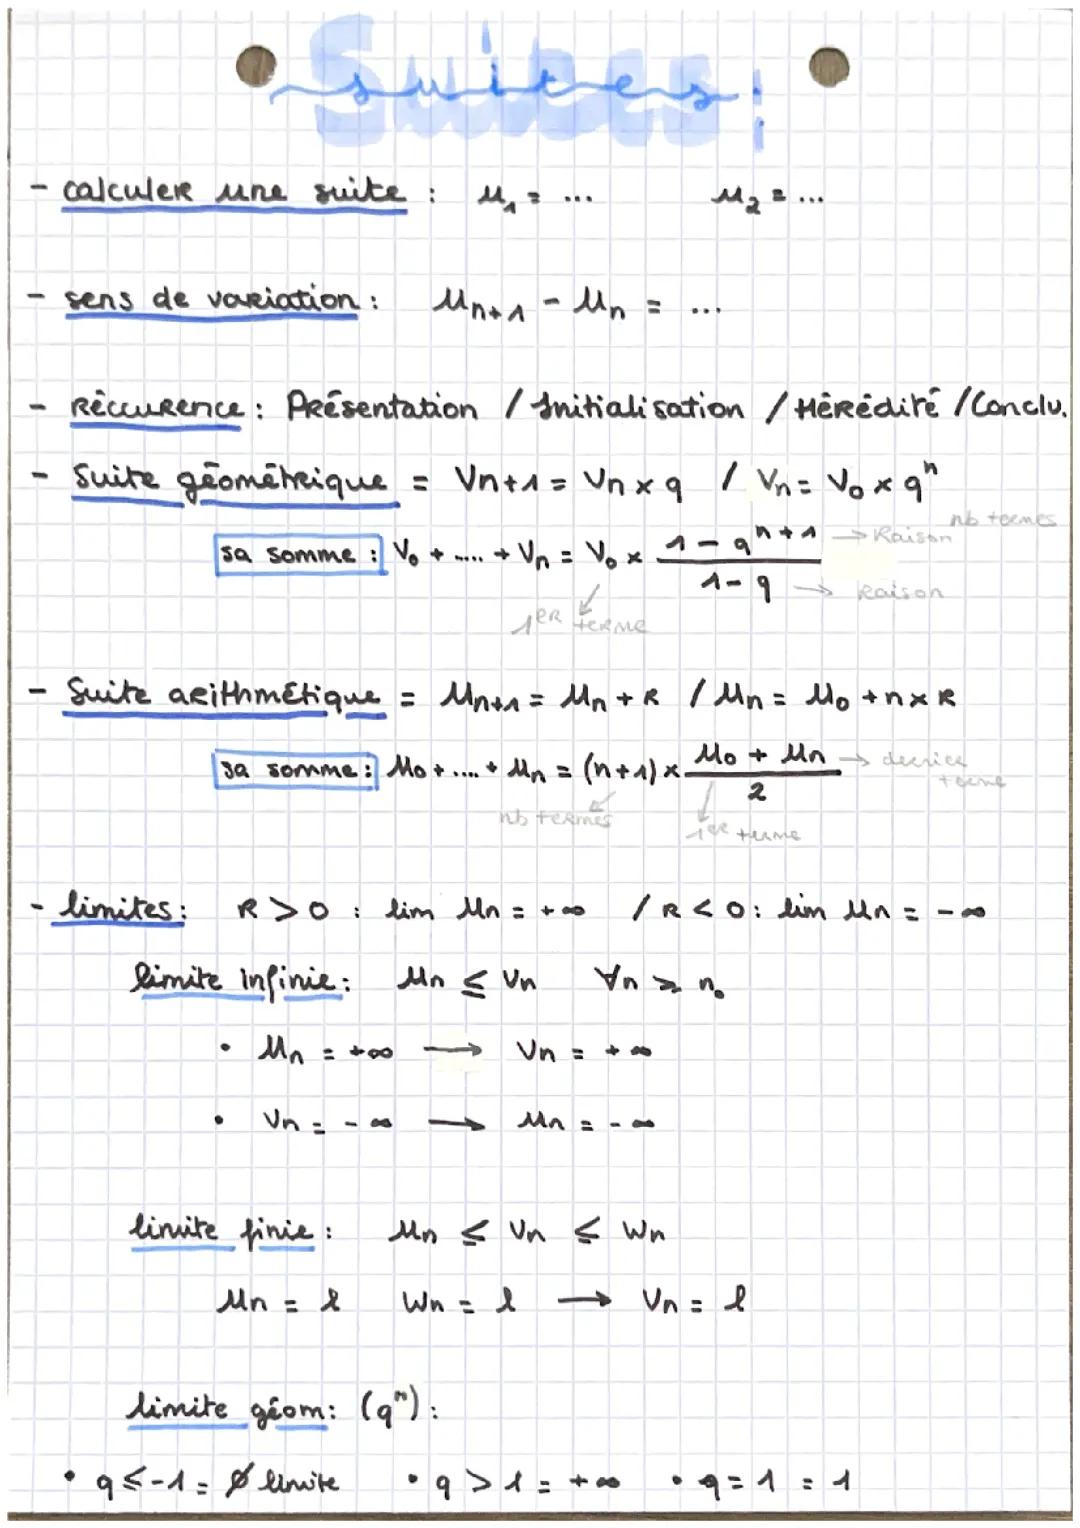 Suites :
- calculer une suite : u₁ = ... u₂ = ...
- sens de variation : Un+1 - Un = ...
- Réccurence : Présentation / Initialisation / Hérédité / Conclu.
- Suite géométrique = Vn+1 = Vn × q / Vn = V₀ × qⁿ
sa somme : V₀ + ..... + Vn = V₀ × (1 - qⁿ⁺¹)/(1 - q)
nb termes
→ Raison
→ Raison
1er terme
- Suite arithmétique = Un+1 = Un + R / Un = U₀ + n × R
sa somme : U₀ + .... + Un = (n+1) × (U₀ + Un)/2
→ dernier terme
nb termes
1er terme
- limites : R > 0 : lim Un = +∞ / R < 0 : lim Un = -∞
limite infinie : Un ≤ Vn ∀n ≥ n₀
• Un = +∞ → Vn = +∞
• Vn = -∞ → Un = -∞
limite finie : Un ≤ Vn ≤ Wn
Un = l Wn = l → Vn = l
limite géom : (qⁿ) :
• q ≤ -1 = ∅ limite • q > 1 = +∞ • q = 1 = 1